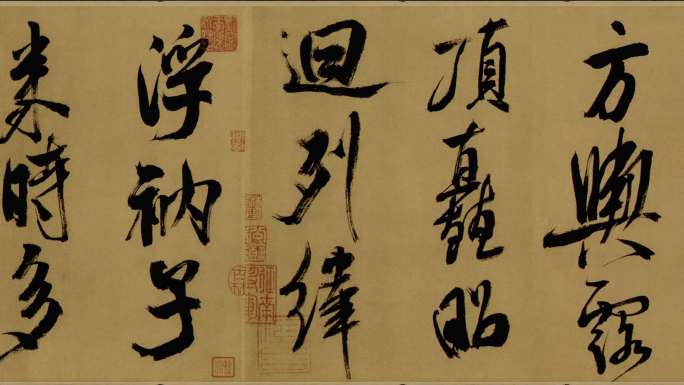 方輿露
頂矗昭
迴列緯
浮衲子
来時多